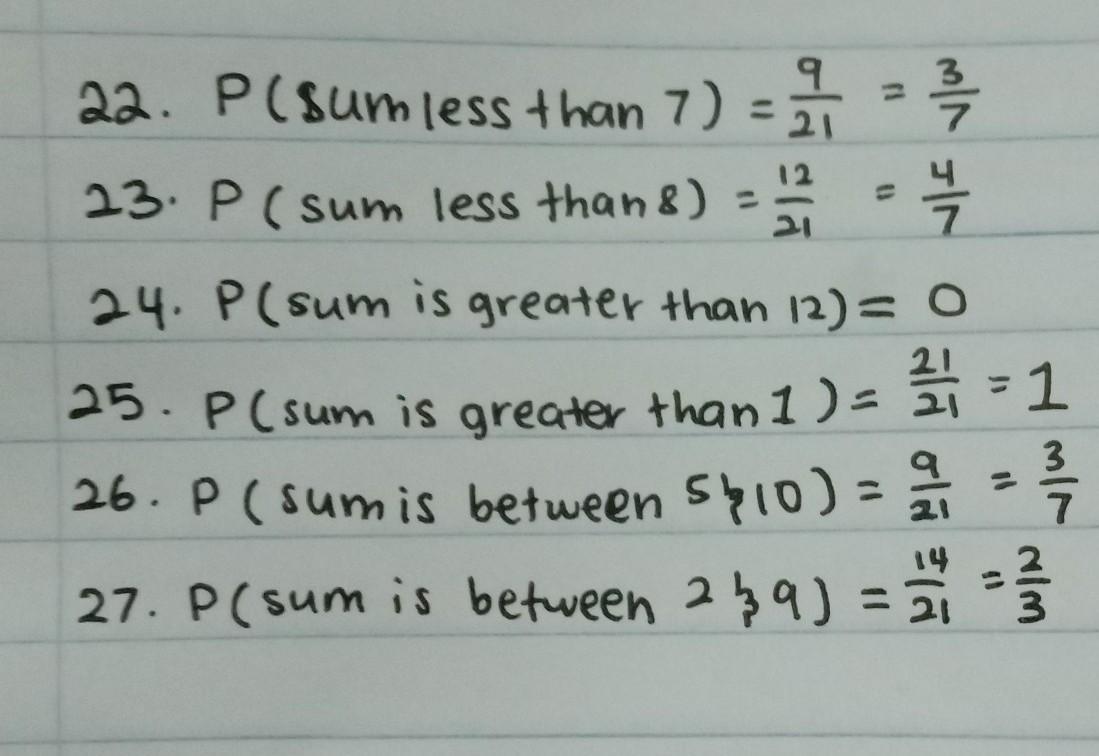 22. P(sum less than 7) = 9/21 = 3/7
23. P(sum less than 8) = 12/21 = 4/7
24. P(sum is greater than 12) = 0
25. P(sum is greater than 1) = 21/21 = 1
26. P(sum is between 5 & 10) = 9/21 = 3/7
27. P(sum is between 2 & 9) = 14/21 = 2/3